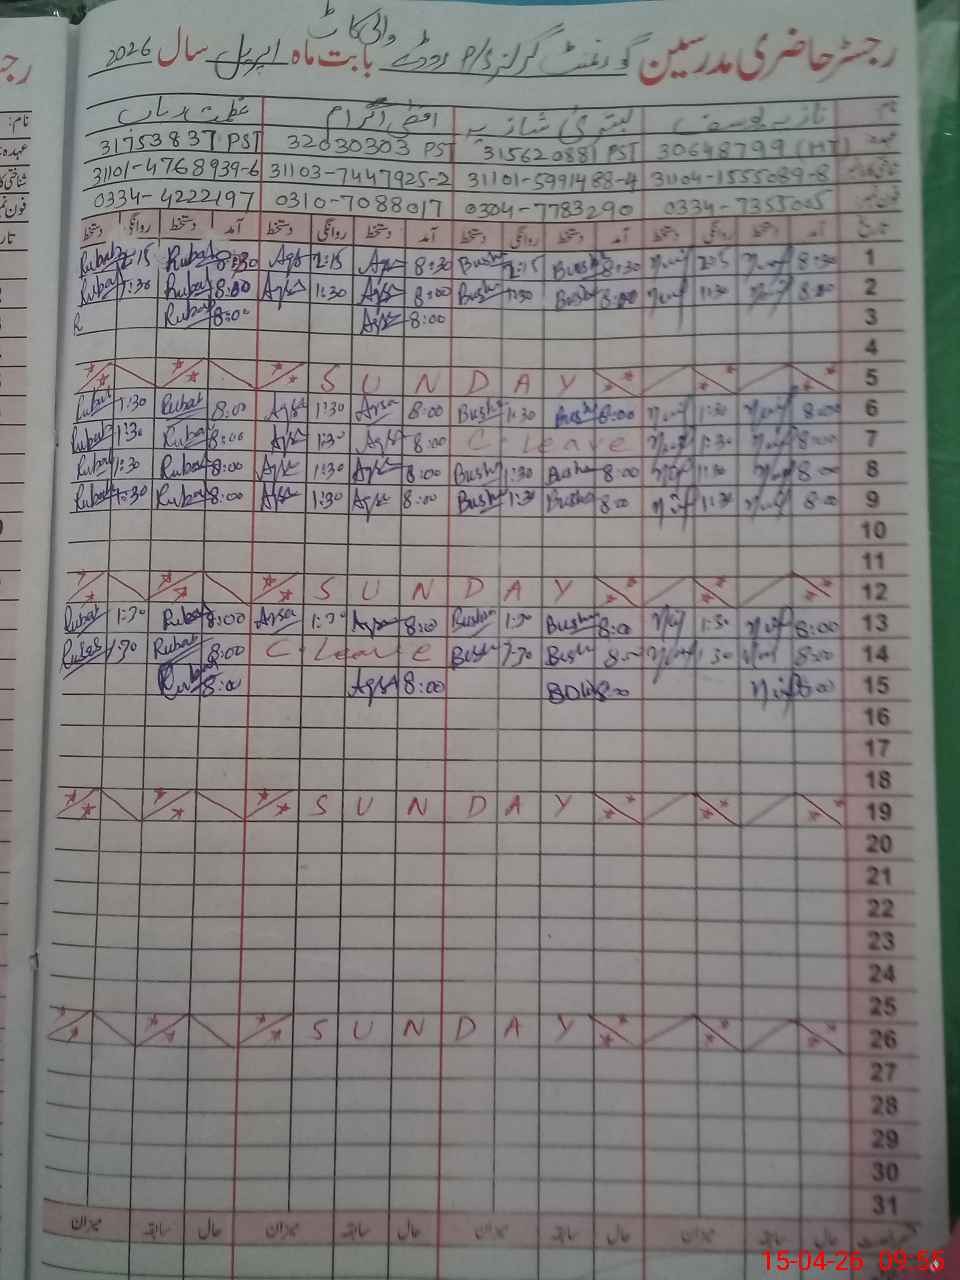 رجسٹر حاضری مدرسین گورنمنٹ گرلز P/S روڈے والی کاٹ بابت ماہ اپریل سال 2026
نام نازیہ یوسف بشریٰ شازیہ اقصیٰ اکرام
عہدہ 30648799 (HT) 315620881 PST 32030303 PST 31753837 PST
31104-1555089-8 31101-5991488-4 31103-7447925-2 31101-4768939-6
فون نمبر 0334-7355005 0304-7783290 0310-7088017 0334-4222197
تاریخ آمد دستخط روانگی دستخط آمد دستخط روانگی دستخط آمد دستخط روانگی دستخط آمد دستخط روانگی دستخط
1 8:30 8:30 Bush 2:15 Bush 8:30 Aqs 2:15 Aqs 8:30 Rubab 2:15 Rubab
2 8:00 1:30 8:00 Bush 1:30 Bush 8:00 Aqsa 1:30 Aqsa 8:00 Rubab 1:30 Rubab
3 8:00 Aqsa 8:00 Rubab R
4
5 S U N D A Y
6 8:00 1:30 8:00 Bush 1:30 Bush 8:00 Aqsa 1:30 Aqsa 8:00 Rubab 1:30 Rubab
7 8:00 1:30 C. Leave 8:00 Aqsa 1:30 Aqsa 8:00 Rubab 1:30 Rubab
8 8:00 1:30 8:00 Bush 1:30 Bush 8:00 Aqsa 1:30 Aqsa 8:00 Rubab 1:30 Rubab
9 8:00 1:30 8:00 Bush 1:30 Bush 8:00 Aqsa 1:30 Aqsa 8:00 Rubab 1:30 Rubab
10
11
12 S U N D A Y
13 8:00 1:30 8:00 Bush 1:30 Bush 8:00 Aqsa 1:30 Aqsa 8:00 Rubab 1:30 Rubab
14 8:00 1:30 8:00 Bush 1:30 Bush C. Leave 8:00 Rubab 1:30 Rubab
15 8:00 8:00 8:00 Aqsa 8:00 Rubab
16
17
18
19 S U N D A Y
20
21
22
23
24
25
26 S U N D A Y
27
28
29
30
31
حال سابقہ میزان حال سابقہ میزان حال سابقہ میزان حال سابقہ میزان
15-04-26 09:55